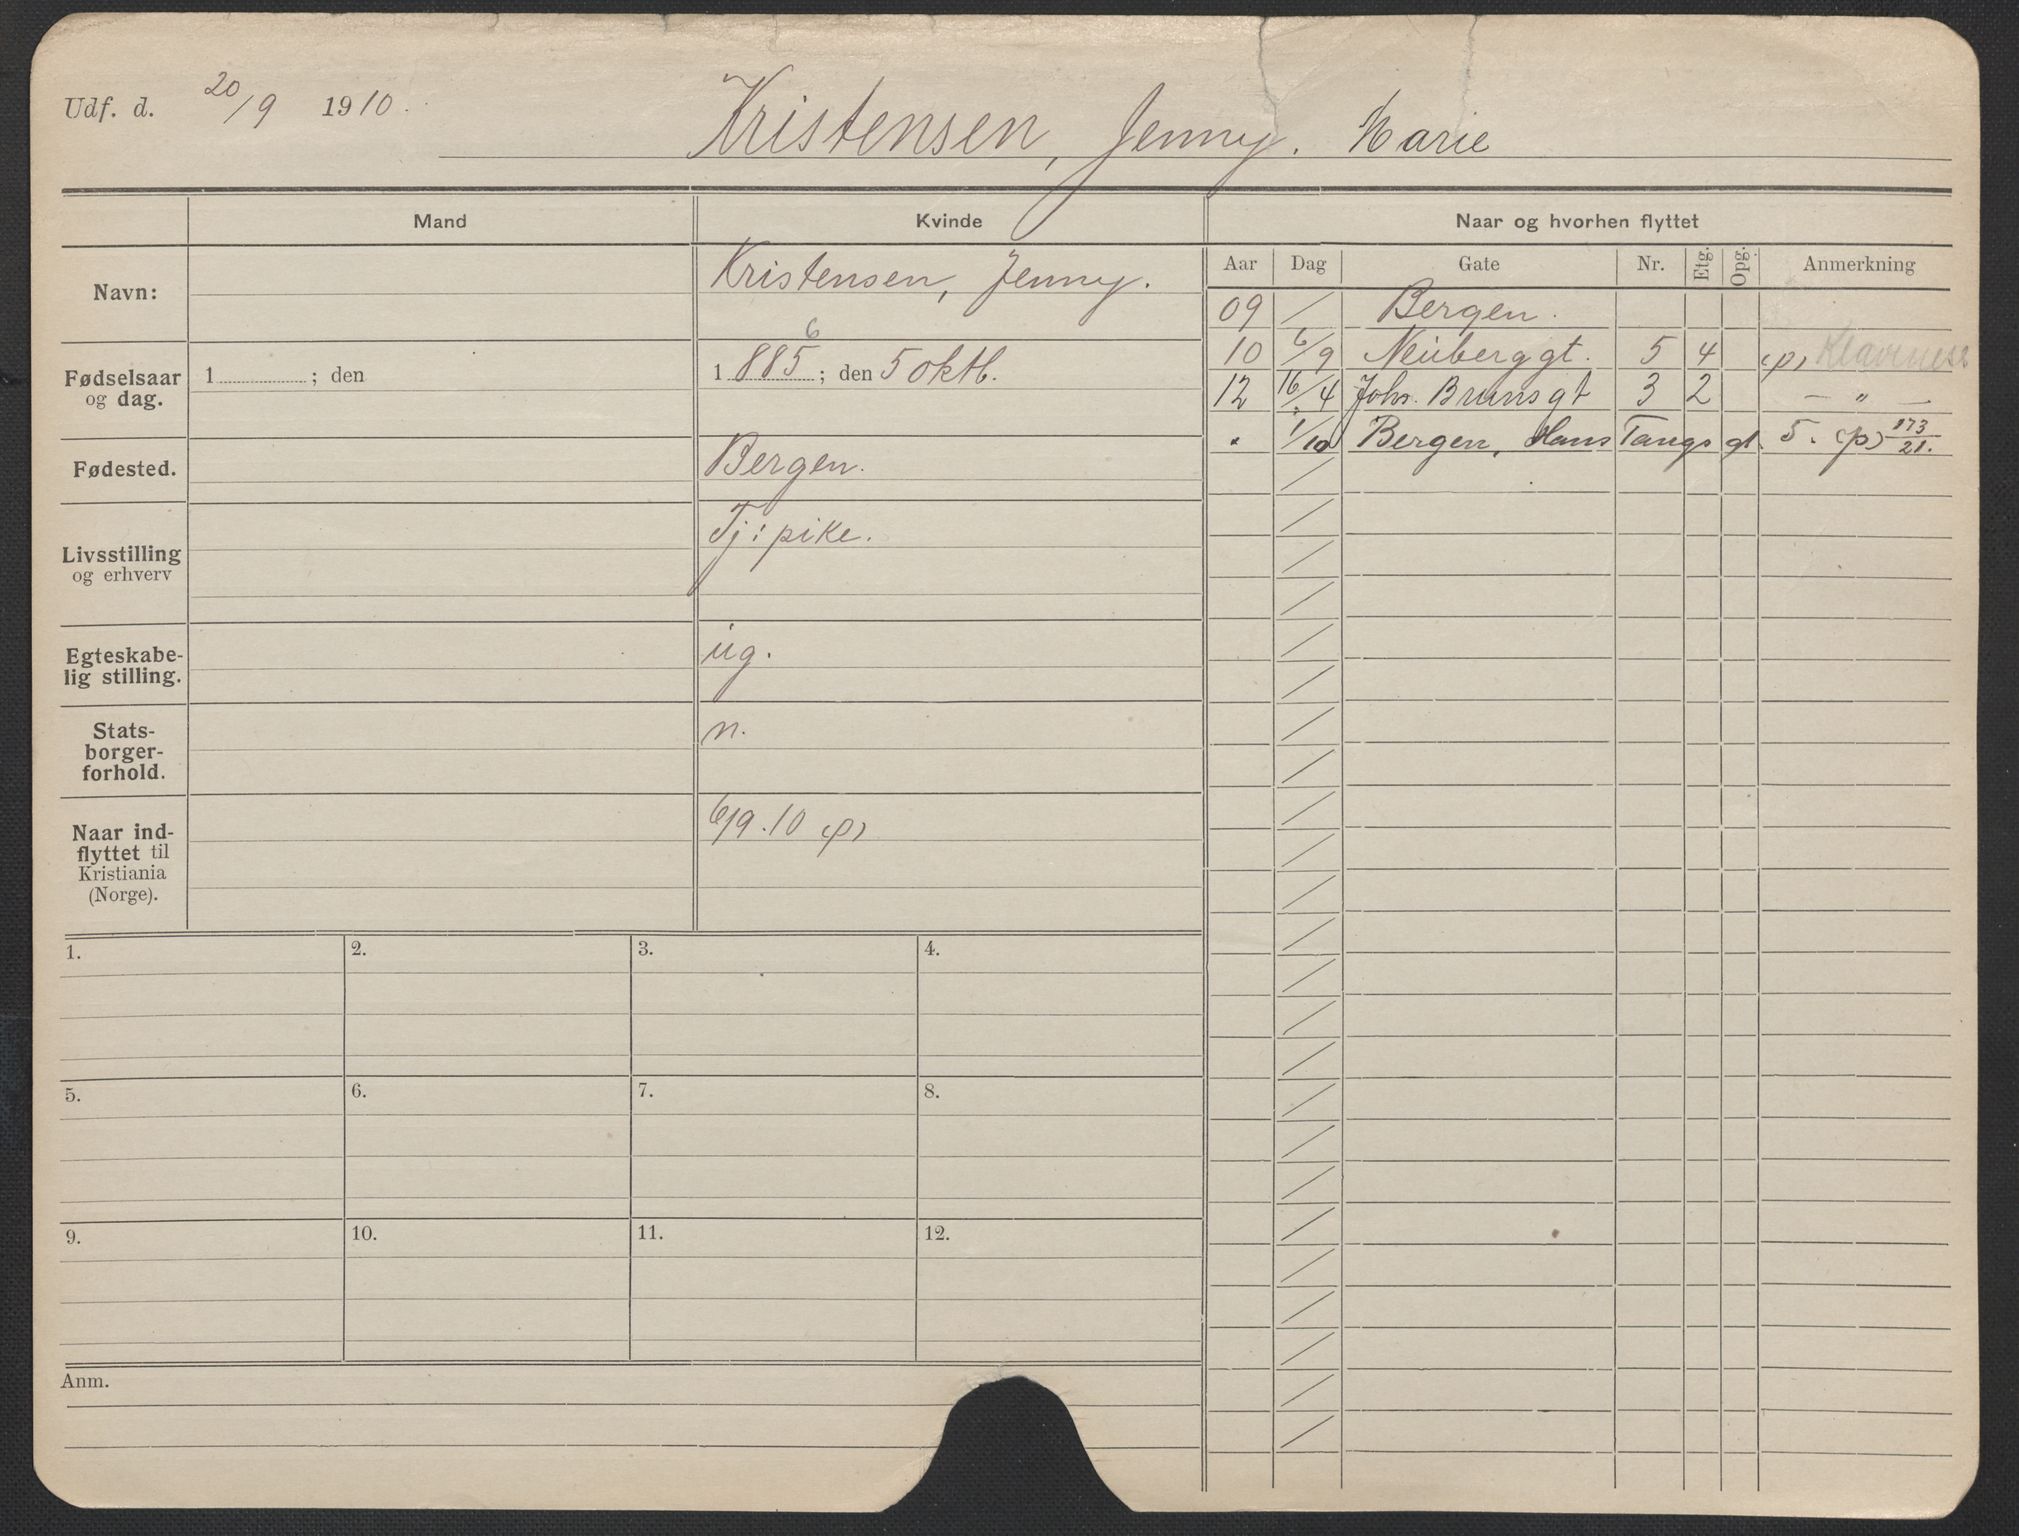 Udf. d. 20/9 1910.
Kristensen, Jenny. Marie
Mand Kvinde Naar og hvorhen flyttet
Aar Dag Gate Nr. Etg. Opg. Anmerkning
Navn: Kristensen, Jenny.
09 / Bergen.
10 6/9 Neuberggt. 5 4 (p)
12 16/4 Johs. Brunsgt 3 2 — " —
. 1/10 Bergen, Hans Tangs gt. 5. (p) 173/21.
6
Fødselsaar og dag. 1 ; den 1 885 ; den 5 oktb.
Fødested. Bergen.
Livsstilling og erhverv Tj: pike.
Egteskabe-
lig stilling. ug.
Stats-
borger-
forhold. n.
Naar ind-
flyttet til
Kristiania
(Norge). 6/9.10 (p)
1. 2. 3. 4.
5. 6. 7. 8.
9. 10. 11. 12.
Anm.